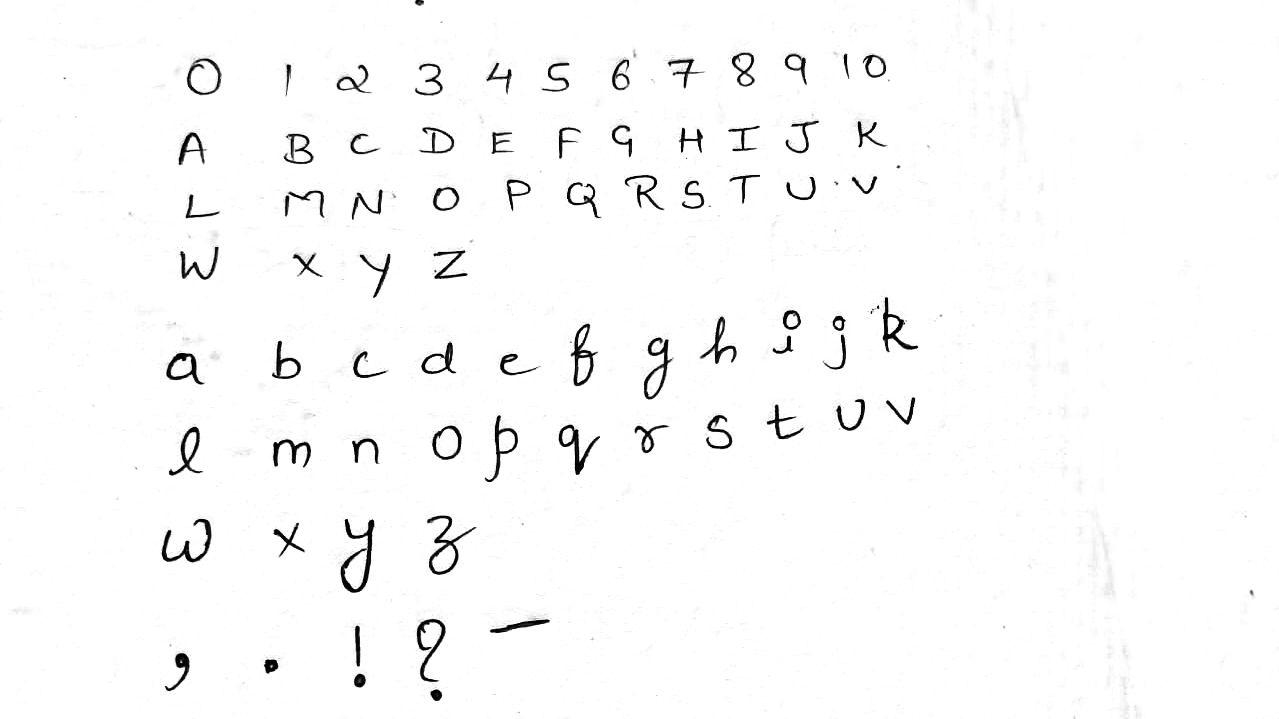 0 1 2 3 4 5 6 7 8 9 10
A B C D E F G H I J K
L M N O P Q R S T U V
W X Y Z
a b c d e f g h i j k
l m n o p q r s t u v
w x y z
, . ! ? -